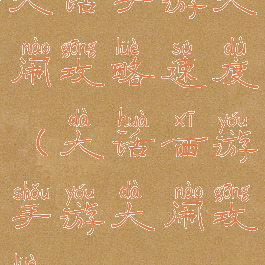 大话手游大
nào gōng lüè sù dù
闹攻略速度
dà huà xī yóu
（大话西游
shǒu yóu dà nào gōng
手游大闹攻
lüè